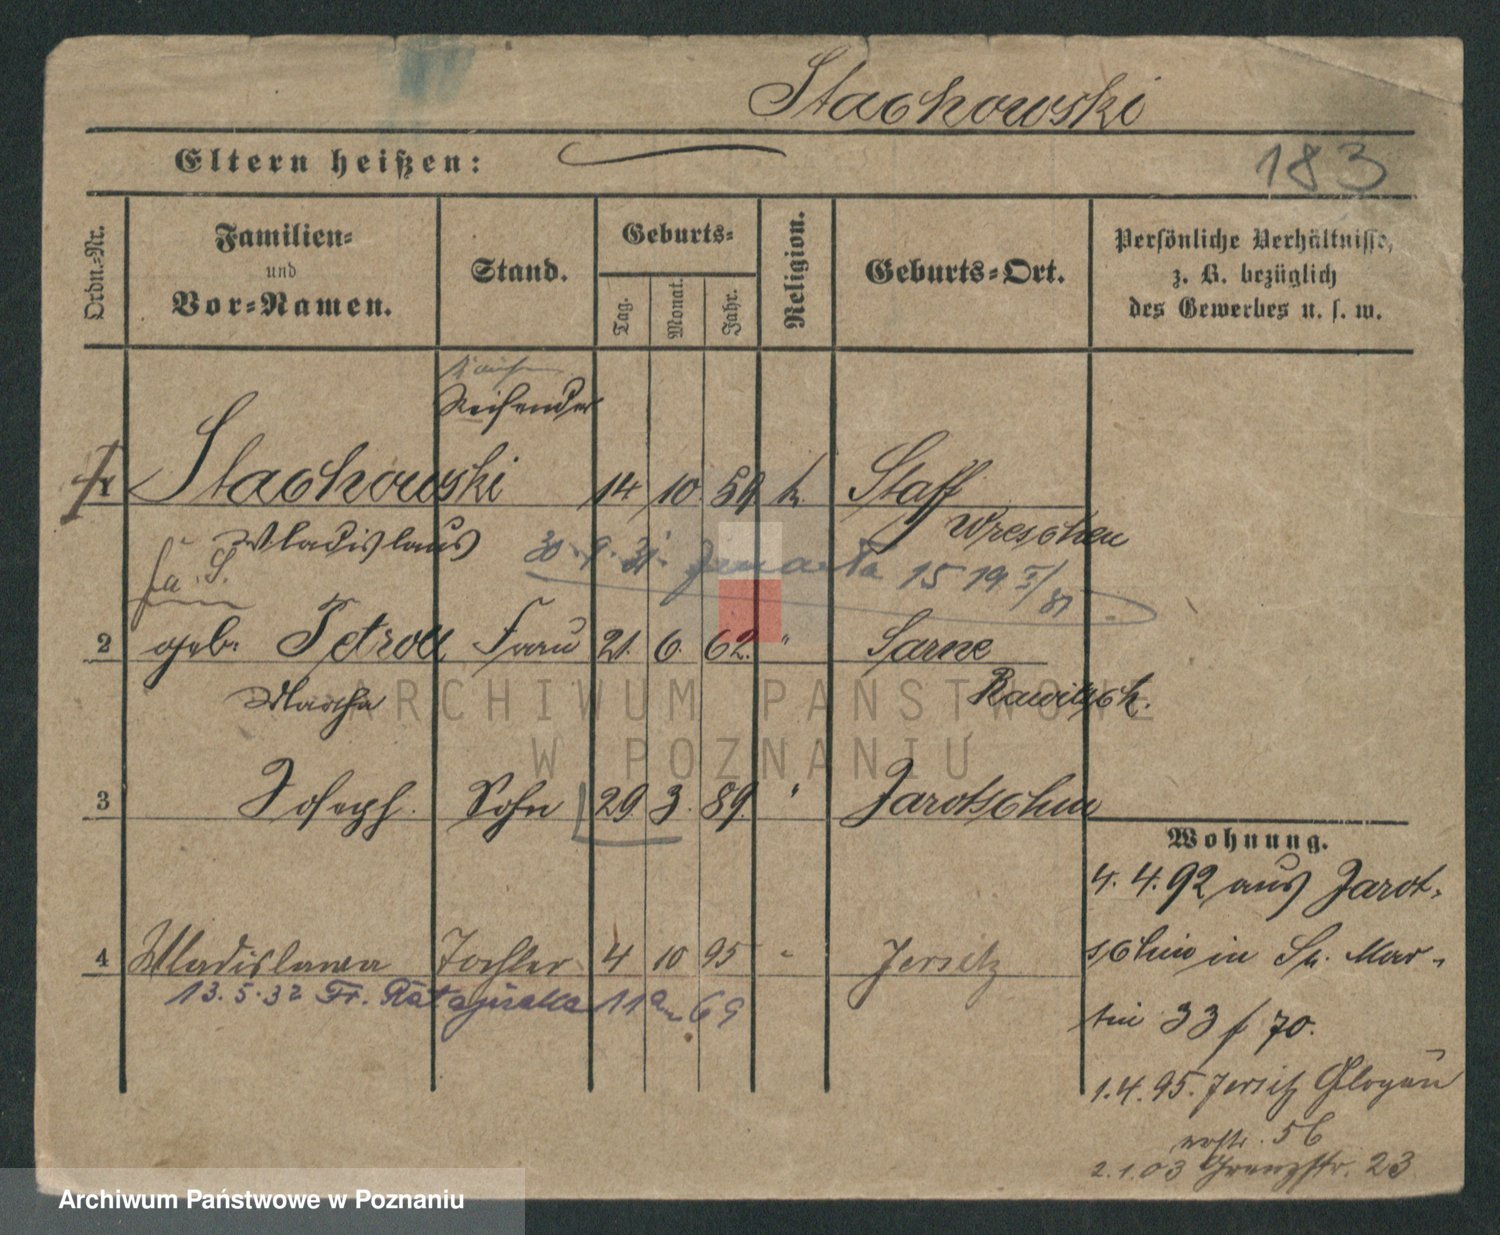 Stachowski
Eltern heißen:
183
Ordn.-Nr.
Familien-
und
Vor-Namen.
Stand.
Geburts-
Tag.
Monat.
Jahr.
Religion.
Geburts-Ort.
Persönliche Verhältnisse,
z. B. bezüglich
des Gewerbes u. s. w.
Reisender
1 Stachowski 14. 10. 59 k. Staff
Wladislaus Wreschen
30. 9. 31. 15 19
2 geb. Petroll Frau 21. 6. 62. " Sarne
Martha Rawitsch.
3 Joseph. Sohn 29. 3. 89. " Jarotschin
Wohnung.
4. 4. 92 aus Jarot-
schin in St. Mar-
tin 33 / 70.
4 Wladislawa Tochter 4 10 95 " Jersitz
13.5.32 Fr. Ratajczaka 11a 69
1. 4. 95. Jersitz Glogau
erstr. 56
2.1.03 Grenzstr. 23
ARCHIWUM PAŃSTWOWE
W POZNANIU
Archiwum Państwowe w Poznaniu